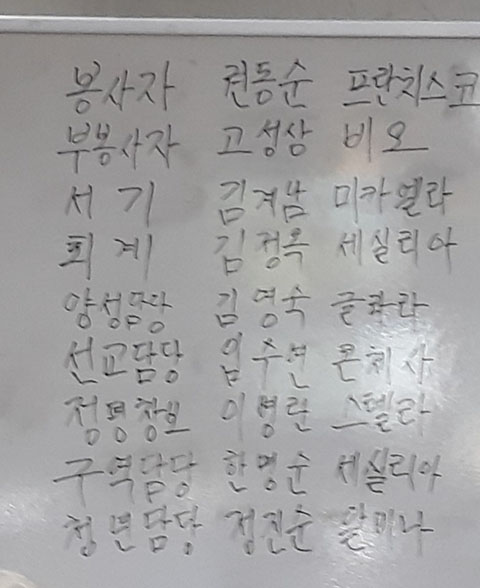 봉사자 권동순 프란치스코
부봉사자 고성상 비오
서기 김겨남 미카엘라
회계 김정옥 세실리아
양성담당 김영숙 글라라
선교담당 임수연 콘체사
정평창보 이병란 스텔라
구역담당 한명순 세실리아
청년담당 정진순 알미나